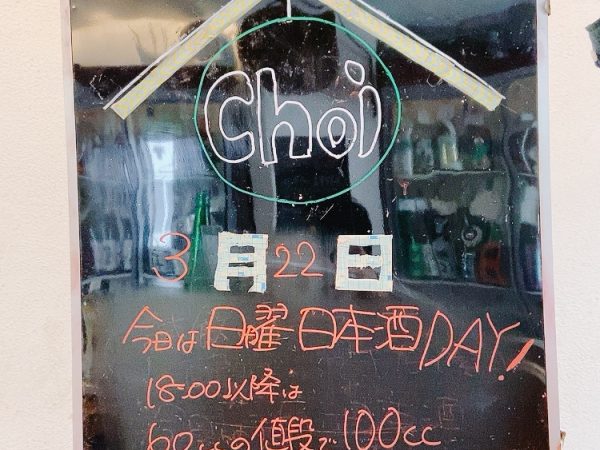 Choi
3月22日
今日は日曜日本酒DAY!
18:00以降は
60ccの値段で100cc